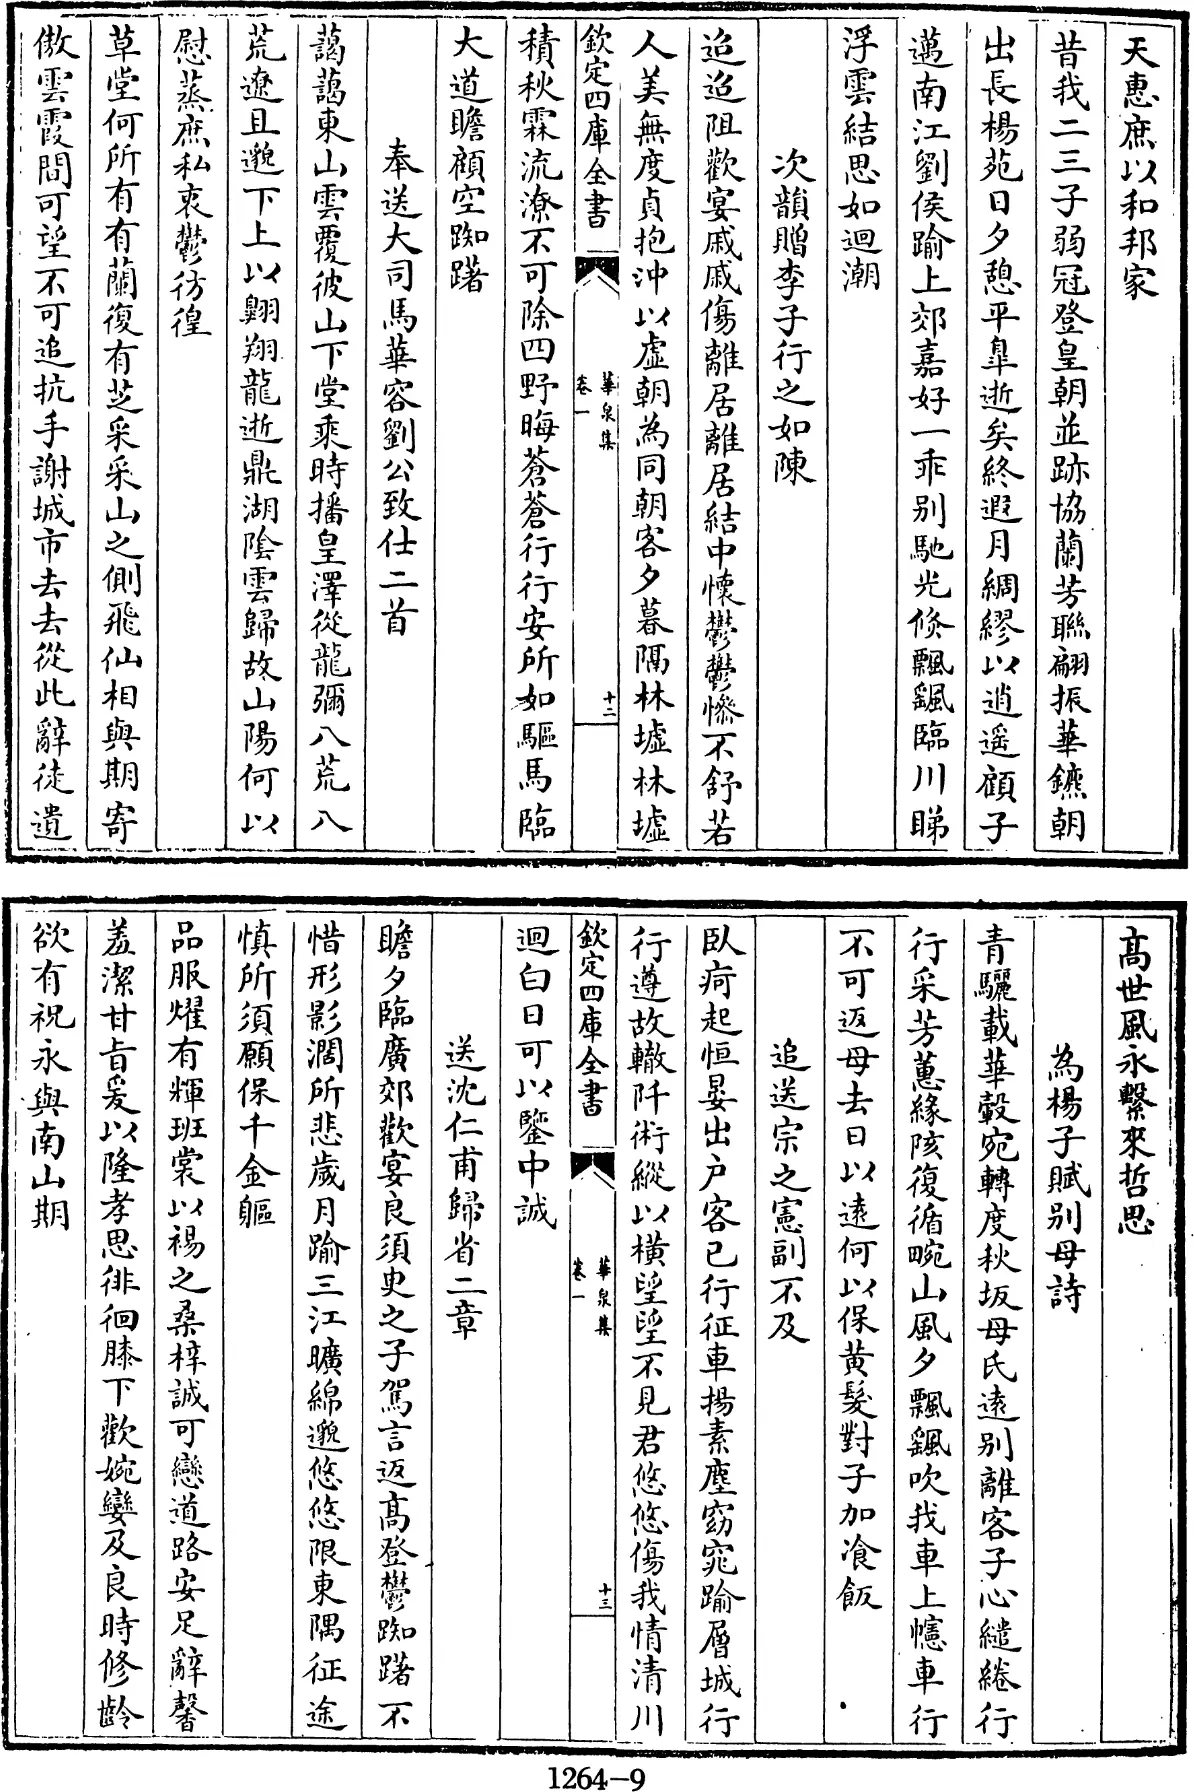 天惠庶以和邦家
昔我二三子弱冠登皇朝並跡協蘭芳聯翩振華鑣朝
出長楊苑日夕憩平臯逝矣終遐月綢繆以逍遥顧子
邁南江劉侯踰上郊嘉好一乖别馳光倐飄颻臨川睇
浮雲結思如迴潮
次韻贈李子行之如陳
迨迨阻歡宴戚戚傷離居離居結中懷鬱鬱慘不舒若
人美無度貞抱冲以虚朝為同朝客夕暮隔林墟林墟
欽定四庫全書
華泉集
卷一
十二
積秋霖流潦不可除四野晦蒼蒼行行安所如驅馬臨
大道瞻顧空踟躇
奉送大司馬華容劉公致仕二首
藹藹東山雲覆彼山下堂乘時播皇澤從龍彌八荒八
荒遼且邈下上以翺翔龍逝鼎湖陰雲歸故山陽何以
慰蒸庶私衷鬱彷徨
草堂何所有有蘭復有芝采采山之側飛仙相與期寄
傲雲霞間可望不可追抗手謝城市去去從此辭徒遺
髙世風永繫來哲思
為楊子賦别母詩
青驪載華轂宛轉度秋坂母氏遠别離客子心繾綣行
行采芳蕙緣陔復循畹山風夕飄颻吹我車上幰車行
不可返母去日以遠何以保黄髮對子加飡飯
追送宗之憲副不及
臥疴起恒晏出户客已行征車揚素塵窈窕踰層城行
行遵故轍阡術縱以横望望不見君悠悠傷我情清川
欽定四庫全書
華泉集
卷一
十三
迴白日可以鑒中誠
送沈仁甫歸省二章
瞻夕臨廣郊歡宴良須臾之子駕言返髙登鬱踟躇不
惜形影濶所悲歲月踰三江曠綿邈悠悠限東隅征途
慎所須願保千金軀
品服燿有輝班裳以裼之桑梓誠可戀道路安足辭馨
羞潔甘旨爰以隆孝思徘徊膝下歡婉孌及良時修齡
欲有祝永與南山期
1264-9